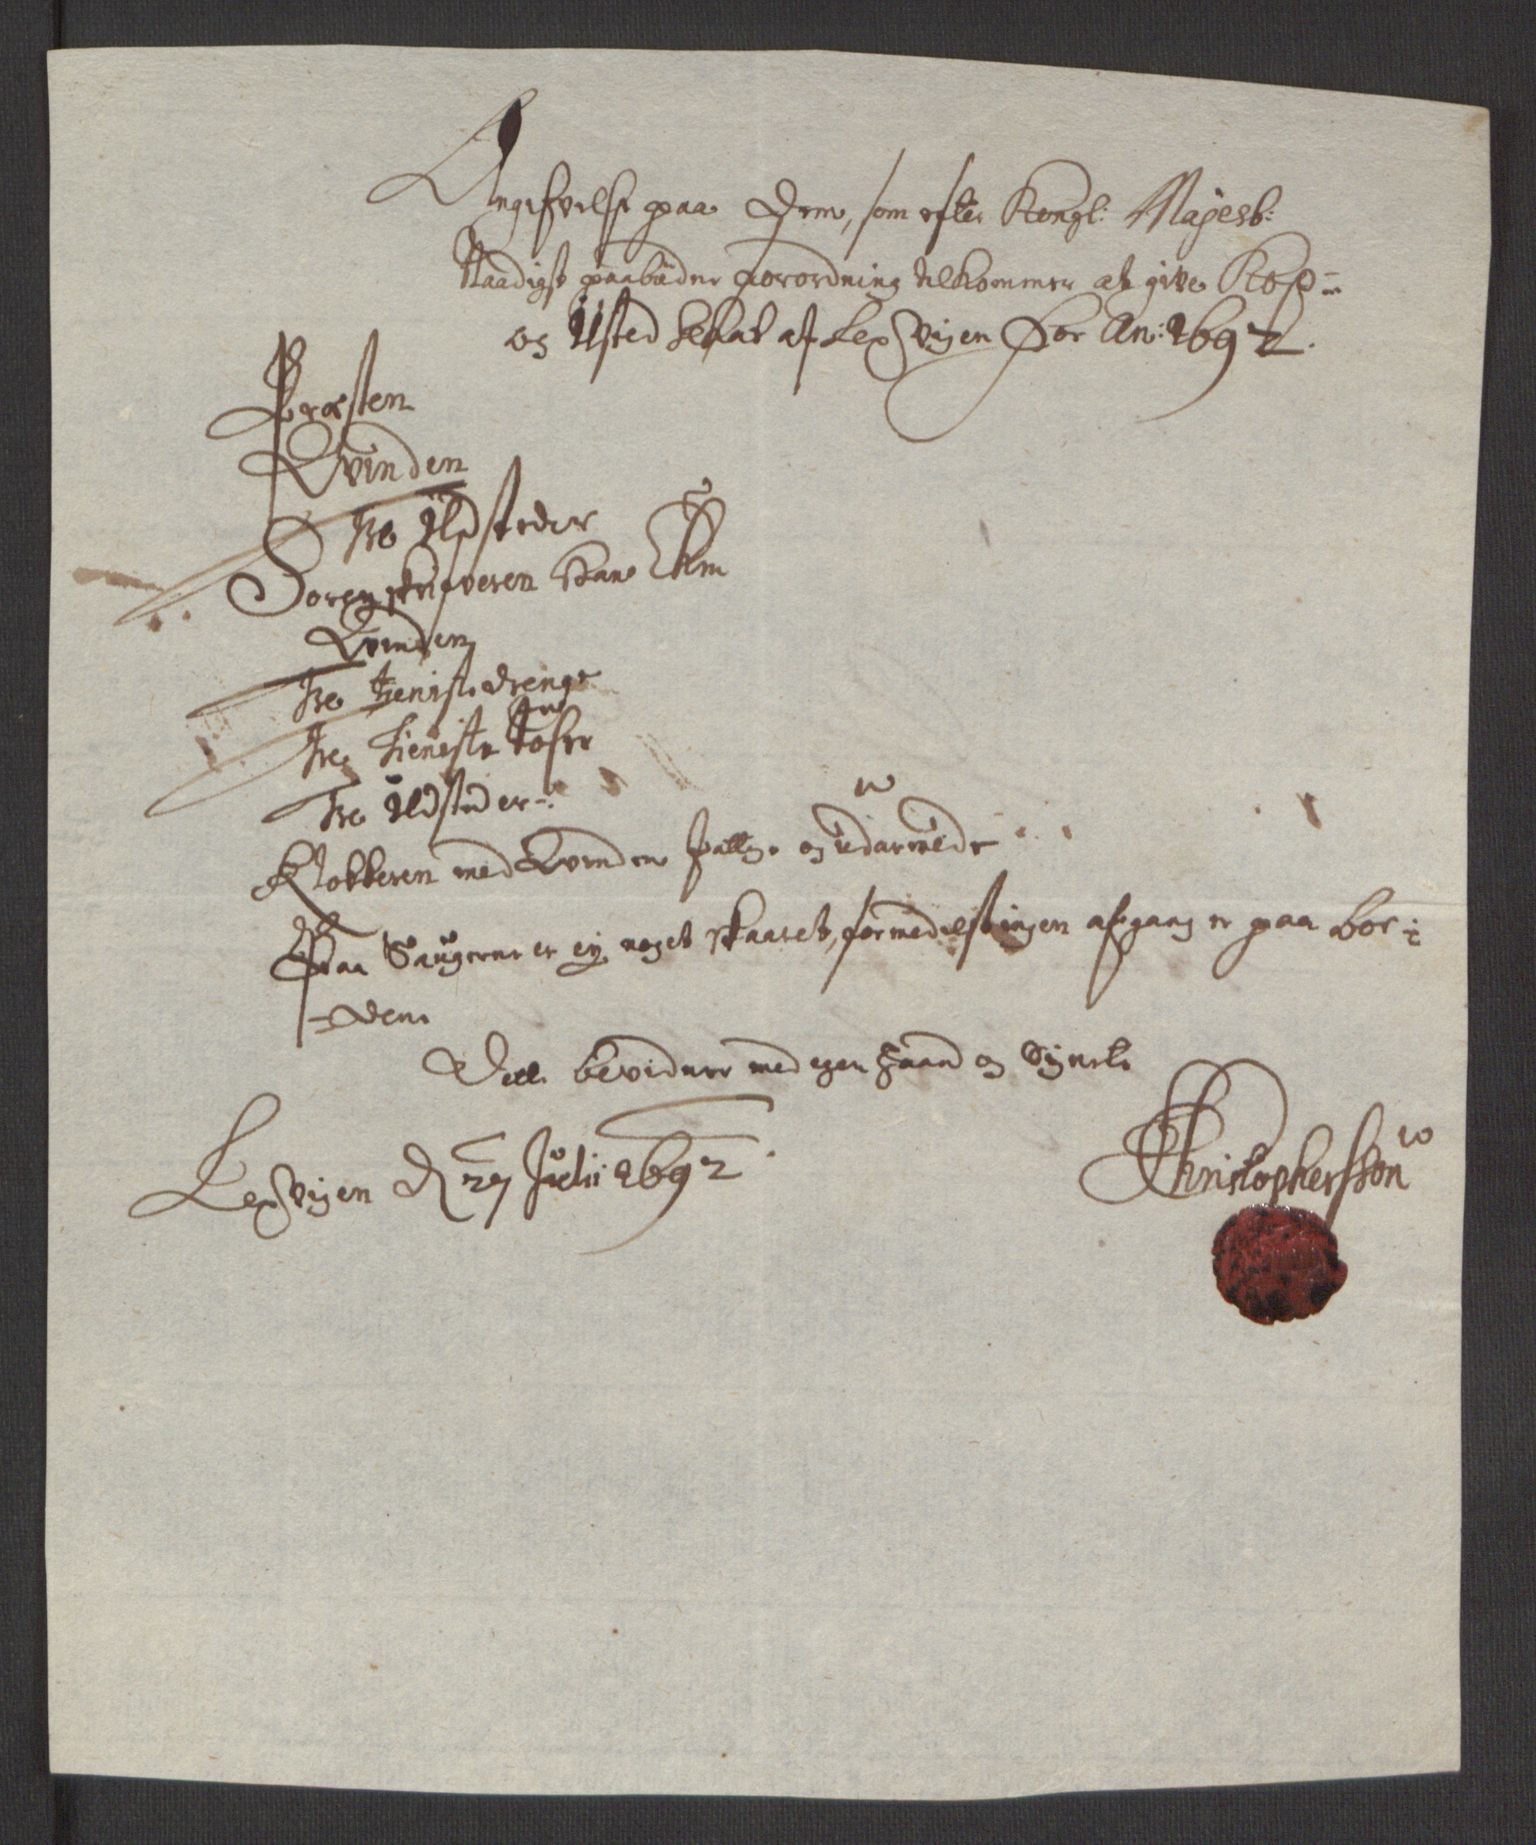 Angifvelse paa dem, som efter Kongl: Mayestt:
Naadigst paabudne forordning tilkommer at give Kop=
og Ilsted Schat af Lexvigen for An: 1692.
Præsten
Qvinden
Tre Ildsteder
Sorenskrifveren Hans
Qvinden
Tre tieniste drenge
Tre tieniste
Tre Ildsteder
Klokkeren med Qvinden fattige og udarmede
Paa Saugerne er ej noget skaaret, formedelst ingen afgang er paa bor=
=dene
Dette bevidner med egen Haand og Signete
Lexvigen d 27 Julii 1692
Christophersøn